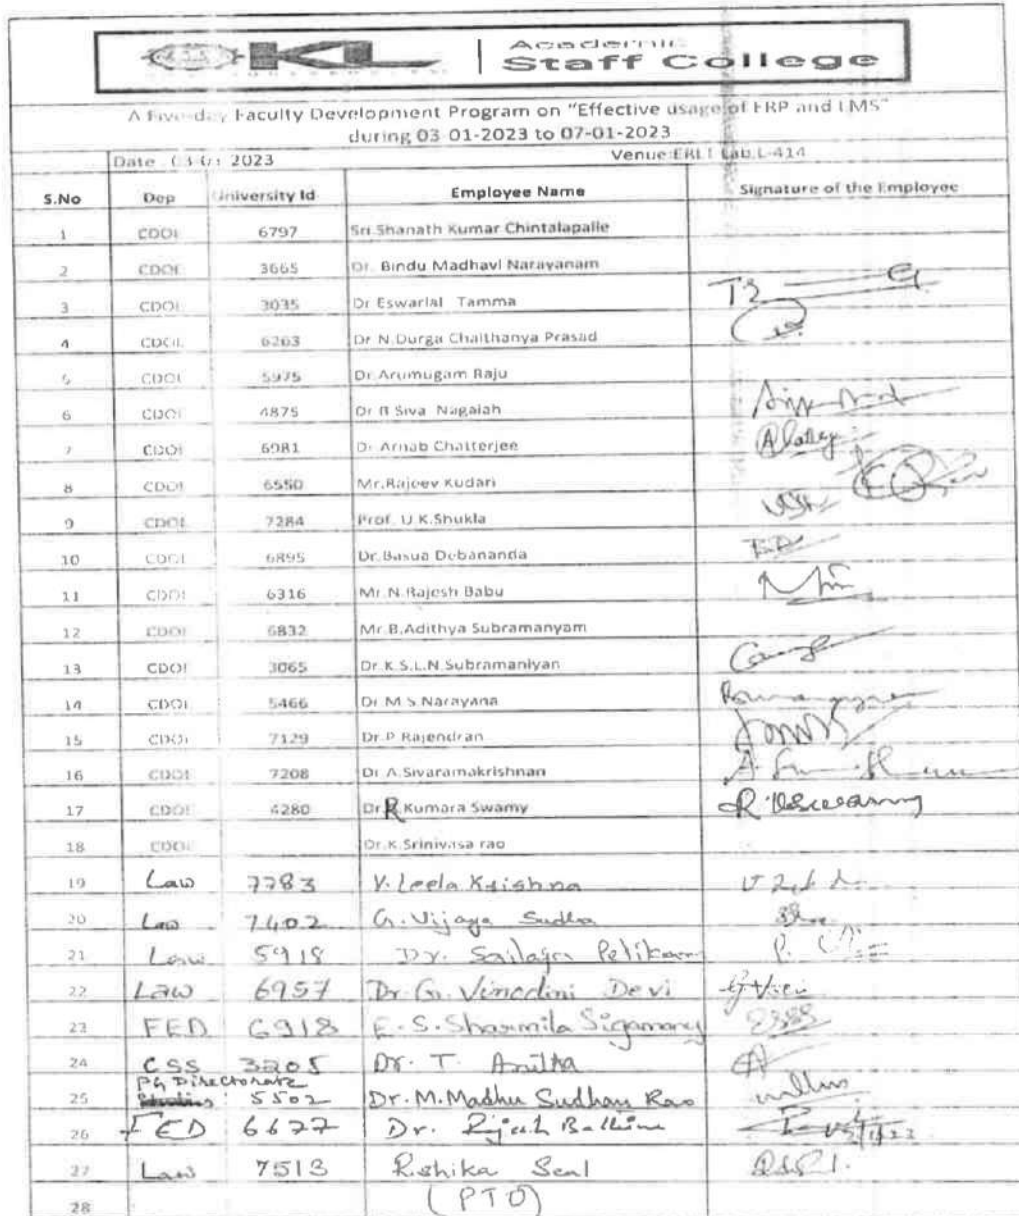 KL | Academic
Staff College
A Five-day Faculty Development Program on "Effective usage of ERP and LMS"
during 03-01-2023 to 07-01-2023
Date 03-01-2023 Venue:ERLT Lab,L-414
S.No Dep University Id Employee Name Signature of the Employee
1 CDOE 6797 Sri.Shanath Kumar Chintalapalle
2 CDOE 3665 Dr. Bindu Madhavi Narayanam
3 CDOE 3035 Dr Eswarlal Tamma
4 CDOE 6263 Dr N.Durga Chaithanya Prasad
5 CDOE 5975 Dr.Arumugam Raju
6 CDOE 4875 Dr B Siva Nagaiah
7 CDOE 6981 Dr Arnab Chatterjee
8 CDOE 6550 Mr.Rajeev Kudari
9 CDOE 7284 Prof. U.K.Shukla
10 CDOE 6895 Dr.Basua Debananda
11 CDOE 6316 Mr.N.Rajesh Babu
12 CDOE 6832 Mr.B.Adithya Subramanyam
13 CDOE 3065 Dr.K.S.L.N.Subramaniyan
14 CDOE 5466 Dr M.S.Narayana
15 CDOE 7129 Dr.P.Rajendran
16 CDOE 7208 Dr A.Sivaramakrishnan
17 CDOE 4280 Dr R Kumara Swamy
18 CDOE Dr.K.Srinivasa rao
19 Law 7783 V. Leela Krishna
20 Law 7402 G. Vijaya Sudha
21 Law 5918 Dr. Sailaja Petikam
22 Law 6957 Dr. G. Vinodini Devi
23 FED 6918 E. S. Sharmila Sigamany
24 CSS 3205 Dr. T. Anitha
PG Directorate
25 5502 Dr. M. Madhu Sudhan Rao
26 FED 6627 Dr.
27 Law 7513 Rishika Seal
28 (PTO)